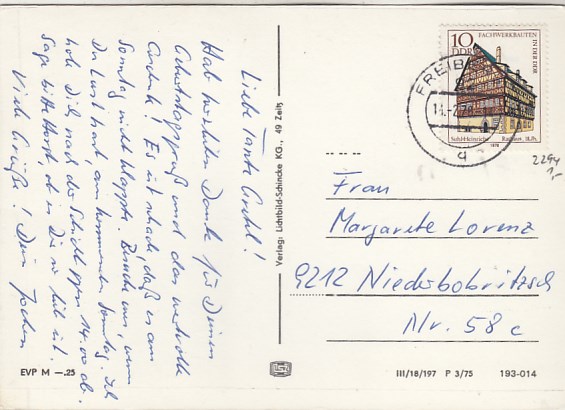 Liebe Tante Gretel!
Hab herzlichen Dank für Deinen
Geburtstagsgruß und das wertvolle
Es ist schade, daß es am
Sonntag nicht klappte. Besuche uns, wenn
Du Lust hast, am kommenden Sonntag. Ich
hole Dich nach der Schicht gegen 14.00 ab.
Sage bitte Horst, ob es Dir so lieb ist.
Viele Grüße! Dein Jochen
EVP M —.25
Verlag: Lichtbild-Schincke KG., 49 Zeitz
10
DDR
FACHWERKBAUTEN
IN DER DDR
1978
FREIB
2294
1,-
Frau
Margarete Lorenz
9212 Niederbobritzsch
Nr. 58 c
III/18/197 P 3/75 193-014